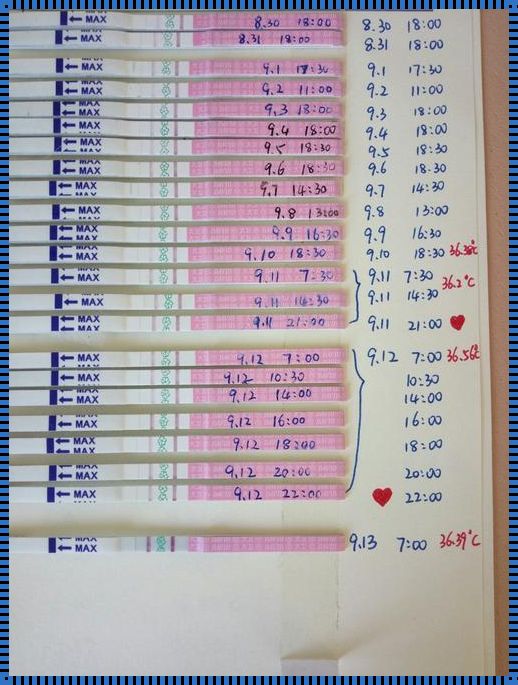 MAX 8.30 18:00 8.30 18:00
MAX 8.31 18:00 8.31 18:00
MAX 9.1 17:30 9.1 17:30
MAX 9.2 11:00 9.2 11:00
MAX 9.3 18:00 9.3 18:00
MAX 9.4 18:00 9.4 18:00
MAX 9.5 18:30 9.5 18:30
MAX 9.6 18:30 9.6 18:30
MAX 9.7 14:30 9.7 14:30
MAX 9.8 13:00 9.8 13:00
MAX 9.9 16:30 9.9 16:30
MAX 9.10 18:30 9.10 18:30 36.38℃
MAX 9.11 7:30 9.11 7:30 36.2℃
MAX 9.11 14:30 9.11 14:30
MAX 9.11 21:00 9.11 21:00
MAX 9.12 7:00 9.12 7:00 36.56℃
MAX 9.12 10:30 10:30
MAX 9.12 14:00 14:00
MAX 9.12 16:00 16:00
MAX 9.12 18:00 18:00
MAX 9.12 20:00 20:00
MAX 9.12 22:00 22:00
MAX 9.13 7:00 36.39℃